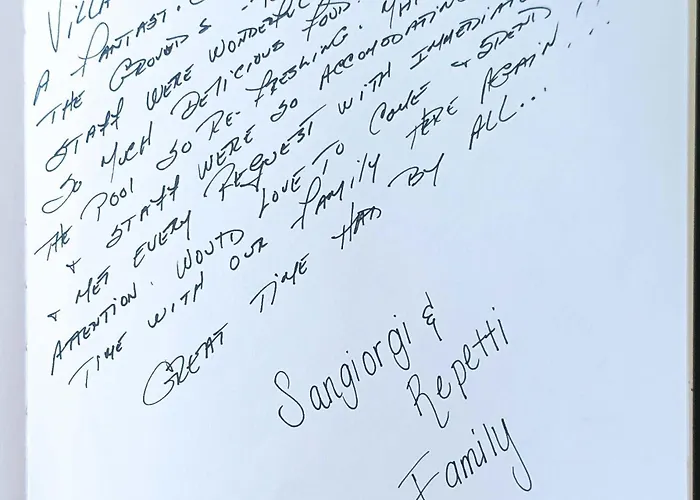 VILLA
A FANTAST
THE GROUNDS
STAFF WERE WONDERFUL
SO MUCH DELICIOUS FOOD.
THE POOL SO RE-FRESHING.
& STAFF WERE SO ACCOMODATING
& MET EVERY REQUEST WITH IMMEDIATE
ATTENTION. WOULD LOVE TO COME & SPEND
TIME WITH OUR FAMILY HERE AGAIN...
GREAT TIME HAD BY ALL...
Sangiorgi &
Repetti
Family